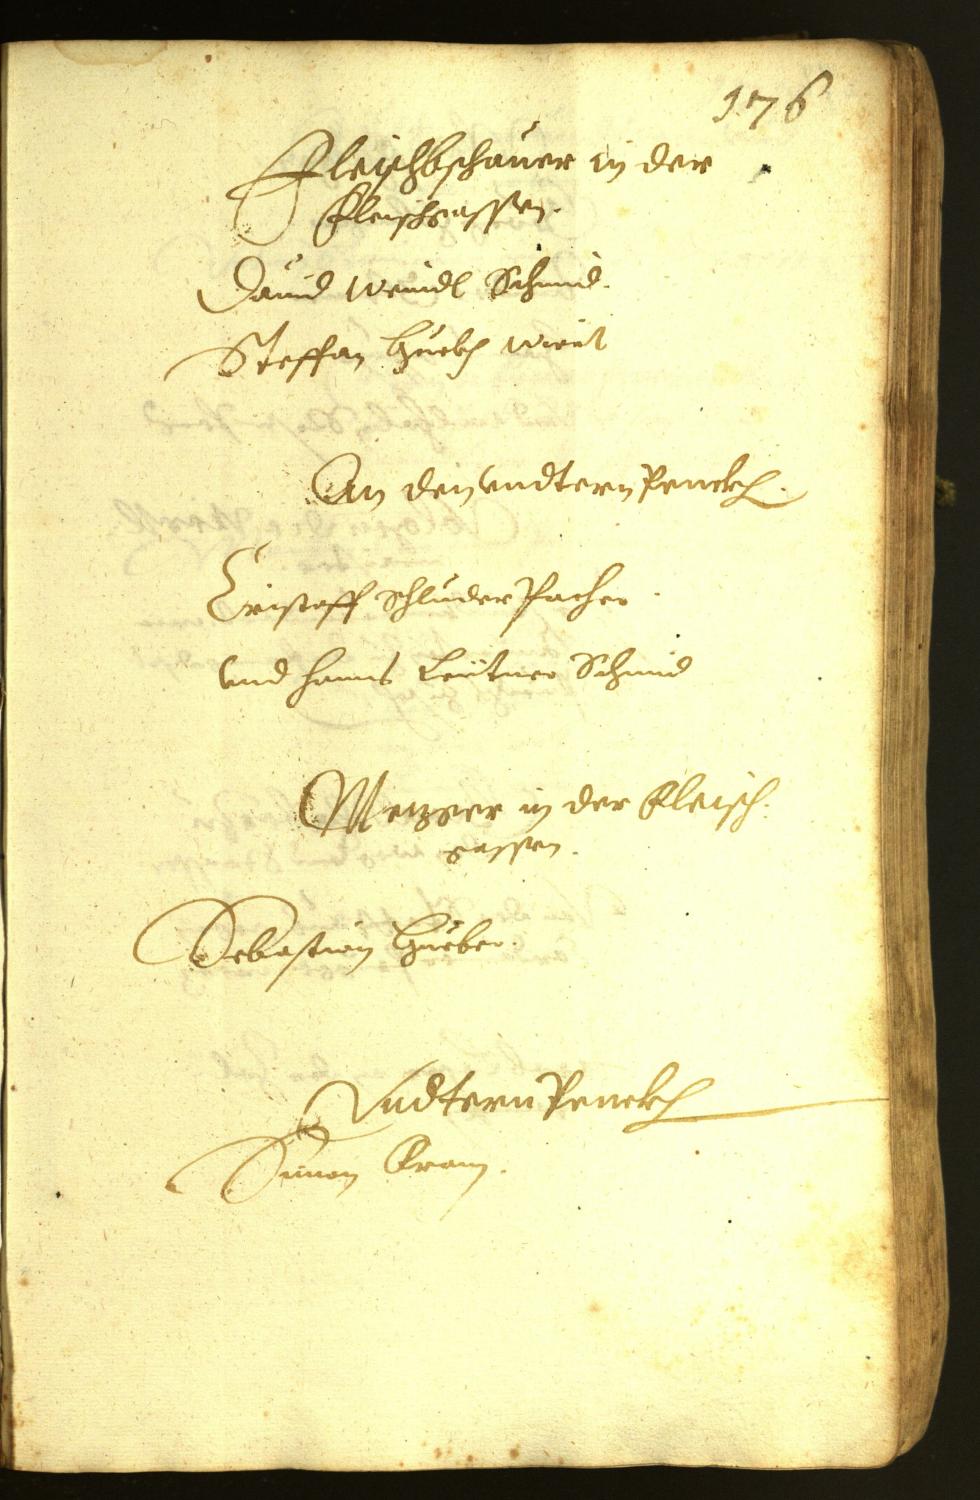 176
Fleischbschauer in der
Fleischgassen.
Dauid Weindl Schmid.
Steffan Hueber Wiert
An den vndtern Penckh.
Cristoff Schluderpacher
vnd Hanns Leütner Schmid
Metzger in der Fleisch-
gassen.
Sebastian Hueber.
Vndtern Penckh
Simon Kram.